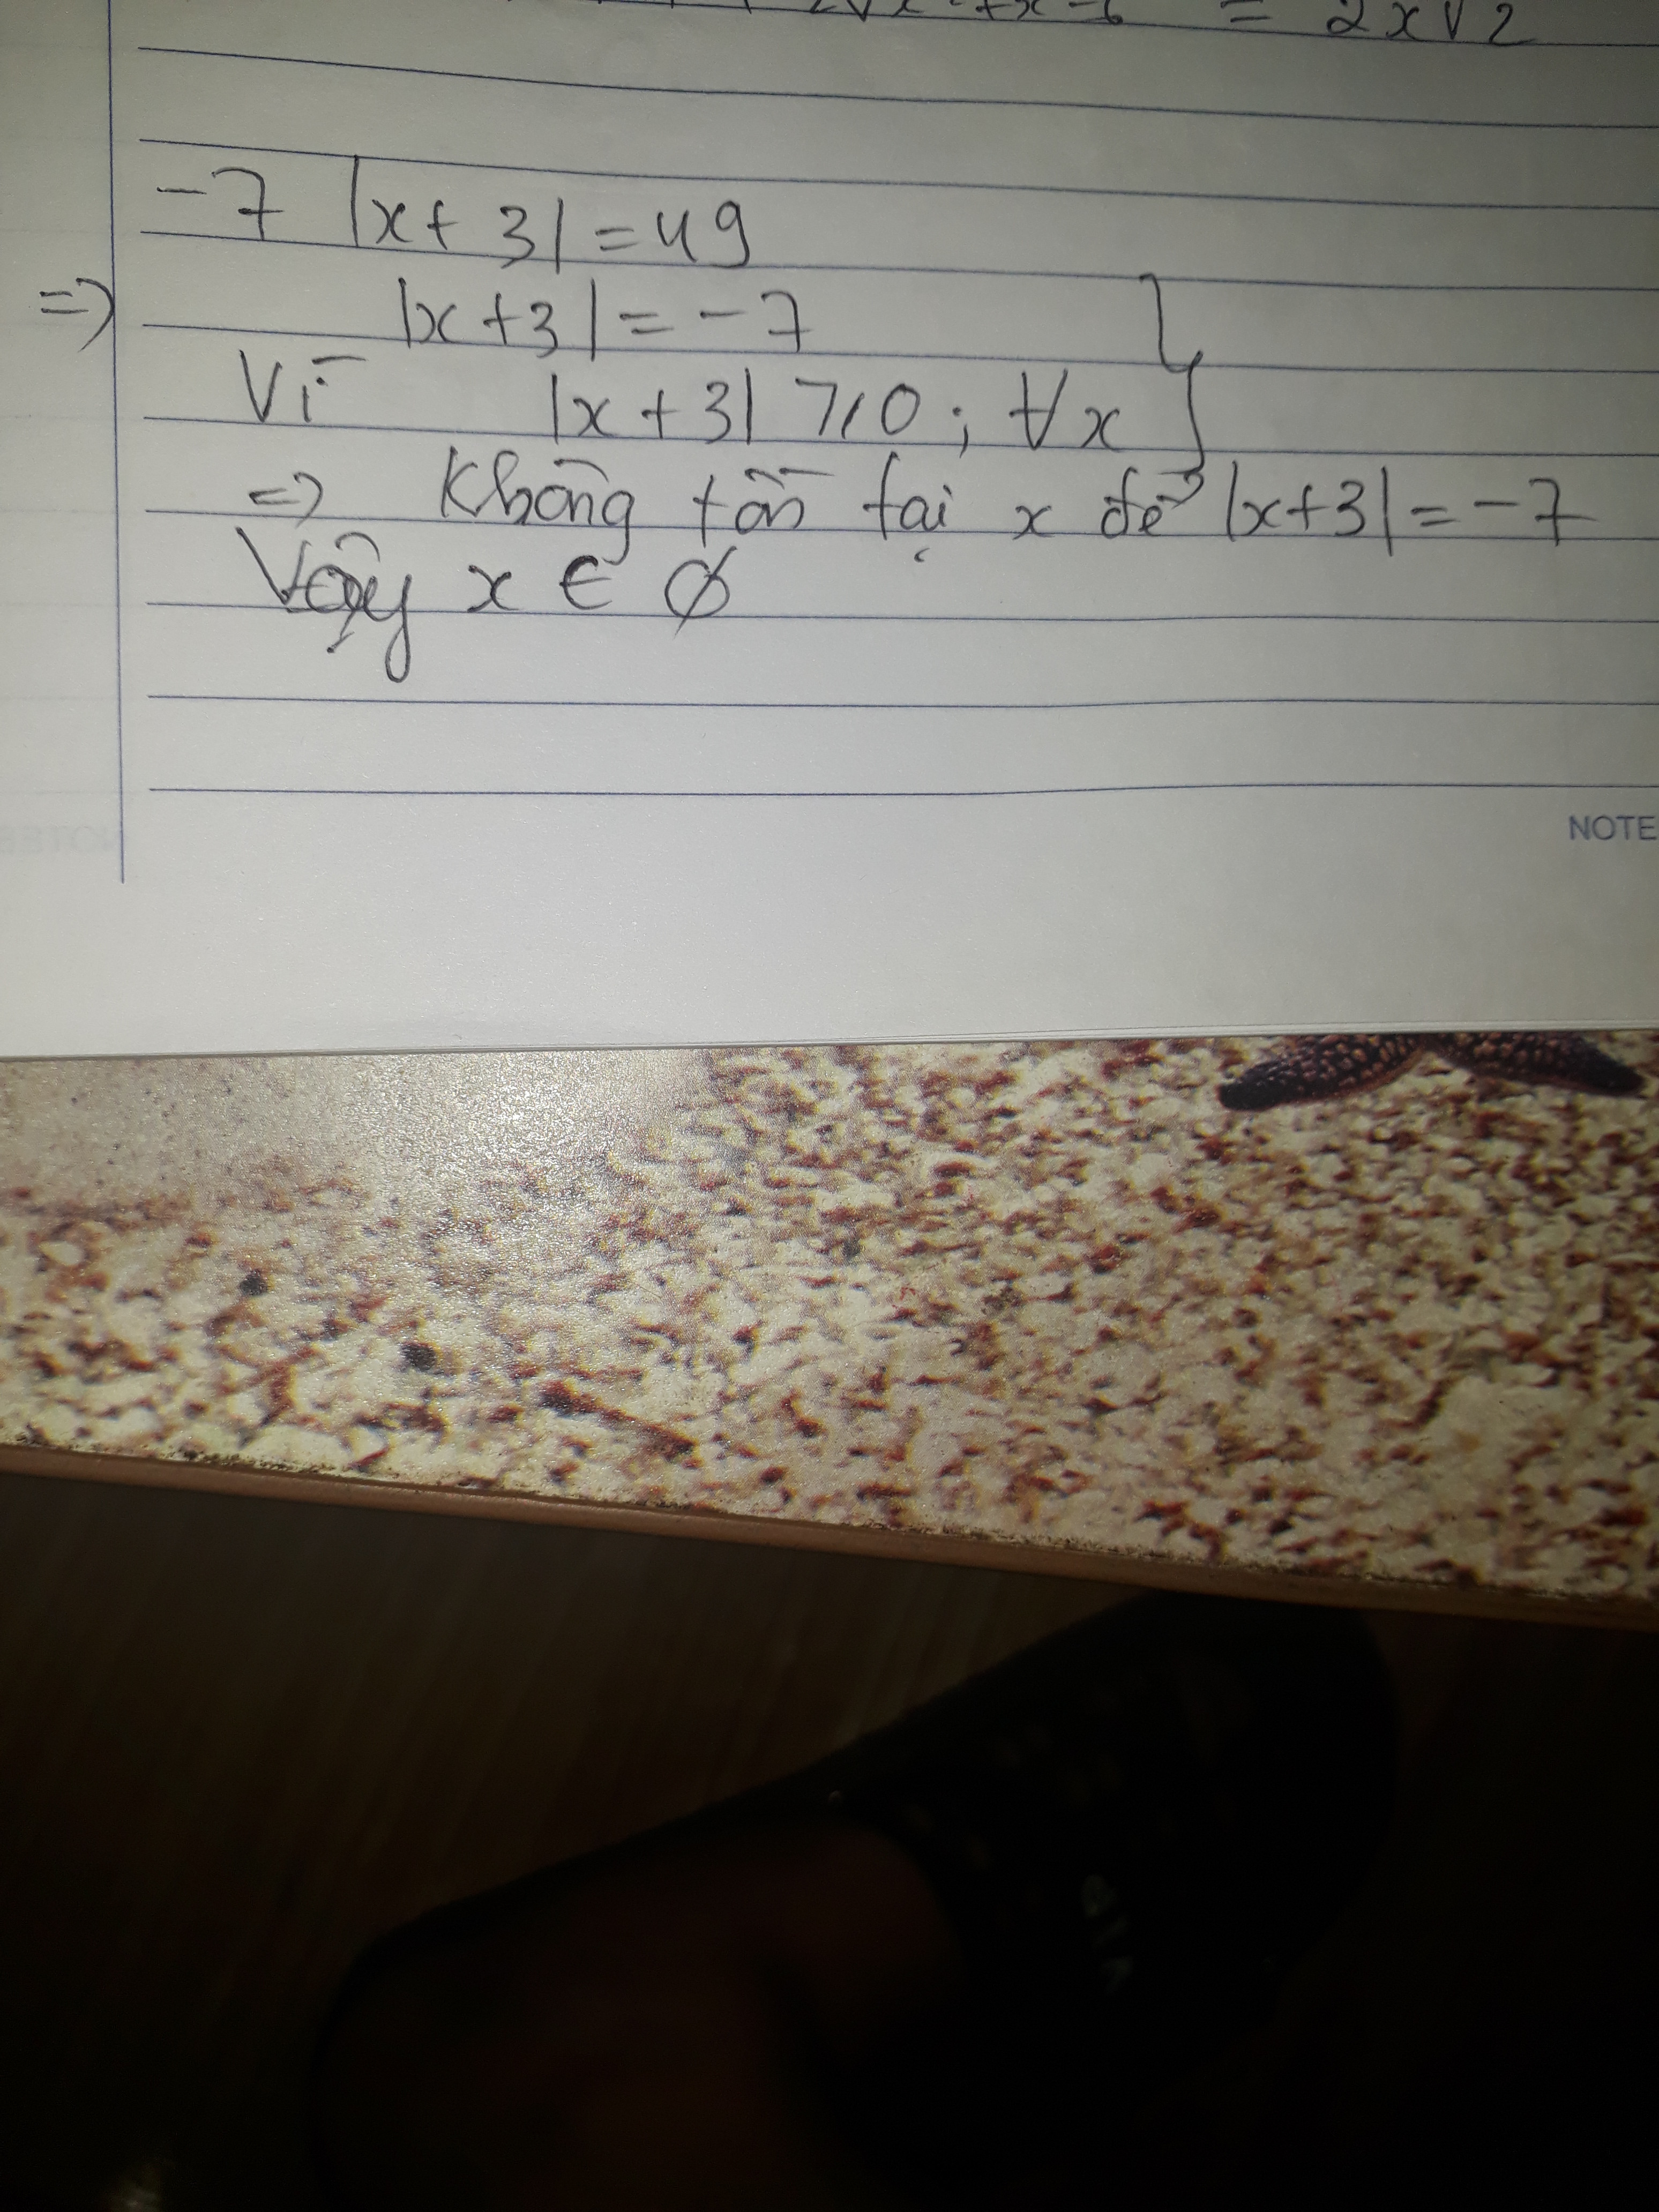 = 2x√2
-7 |x+3| = 49
=> |x+3| = -7
Vì |x+3| ⩾ 0; ∀x
=> Không tồn tại x để |x+3| = -7
Vậy x ∈ ∅
NOTE